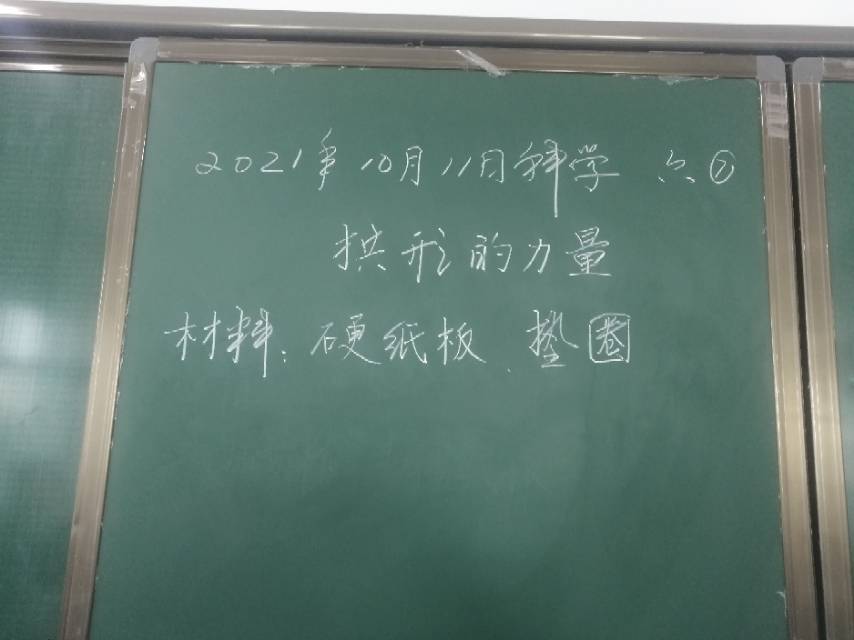 2021年10月11日科学 六②
拱形的力量
材料：硬纸板、垫圈